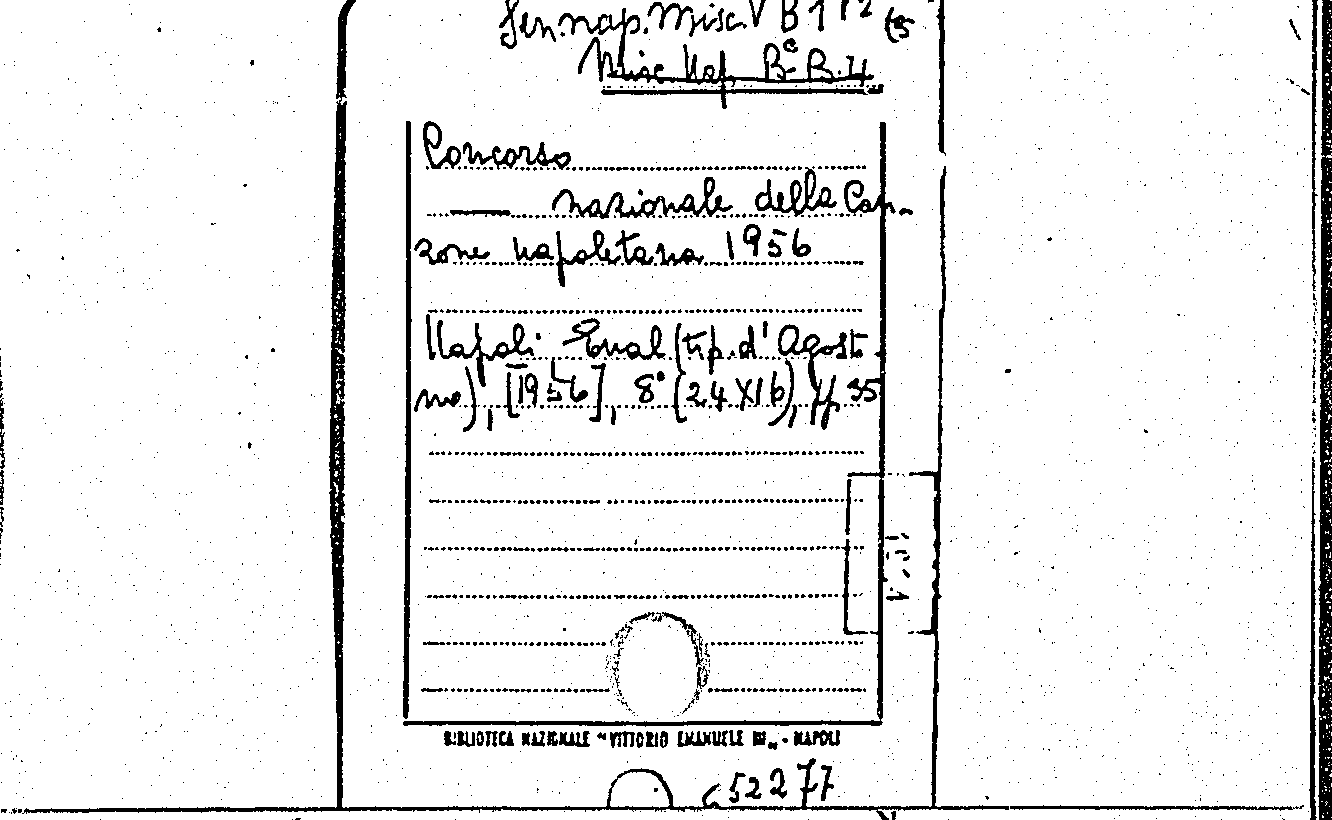 Sen. nap. Misc. V B 1 12 (5
Misc Nap. Bª B.4
Concorso
— nazionale della Can-
zone napoletana 1956
Napoli Enal (tip. d'Agosti-
no), [1956], 8° (24X16), pp 35
BIBLIOTECA NAZIONALE "VITTORIO EMANUELE III„ - NAPOLI
652277